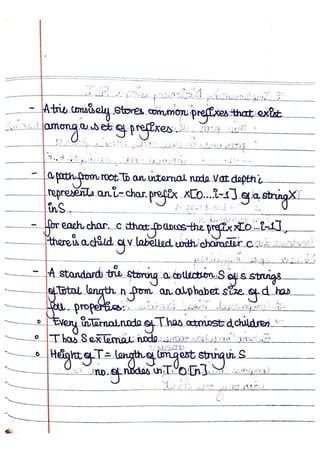 - A trie consisely stores common prefixes that exist
among a set of prefixes.
- a path from root to an internal node V at depth i
represents an i-char. prefix X[0...i-1] of a string X
in S.
- for each char. c that follows the prefix X[0...i-1],
there is a child of v labelled with character c.
- A standard trie storing a collection S of s strings
of total length n from an alphabet size of d has
foll. properties:
o Every internal node of T has atmost d children
o T has S external node
o Height of T = length of longest string in S
no. of nodes in T O[n]